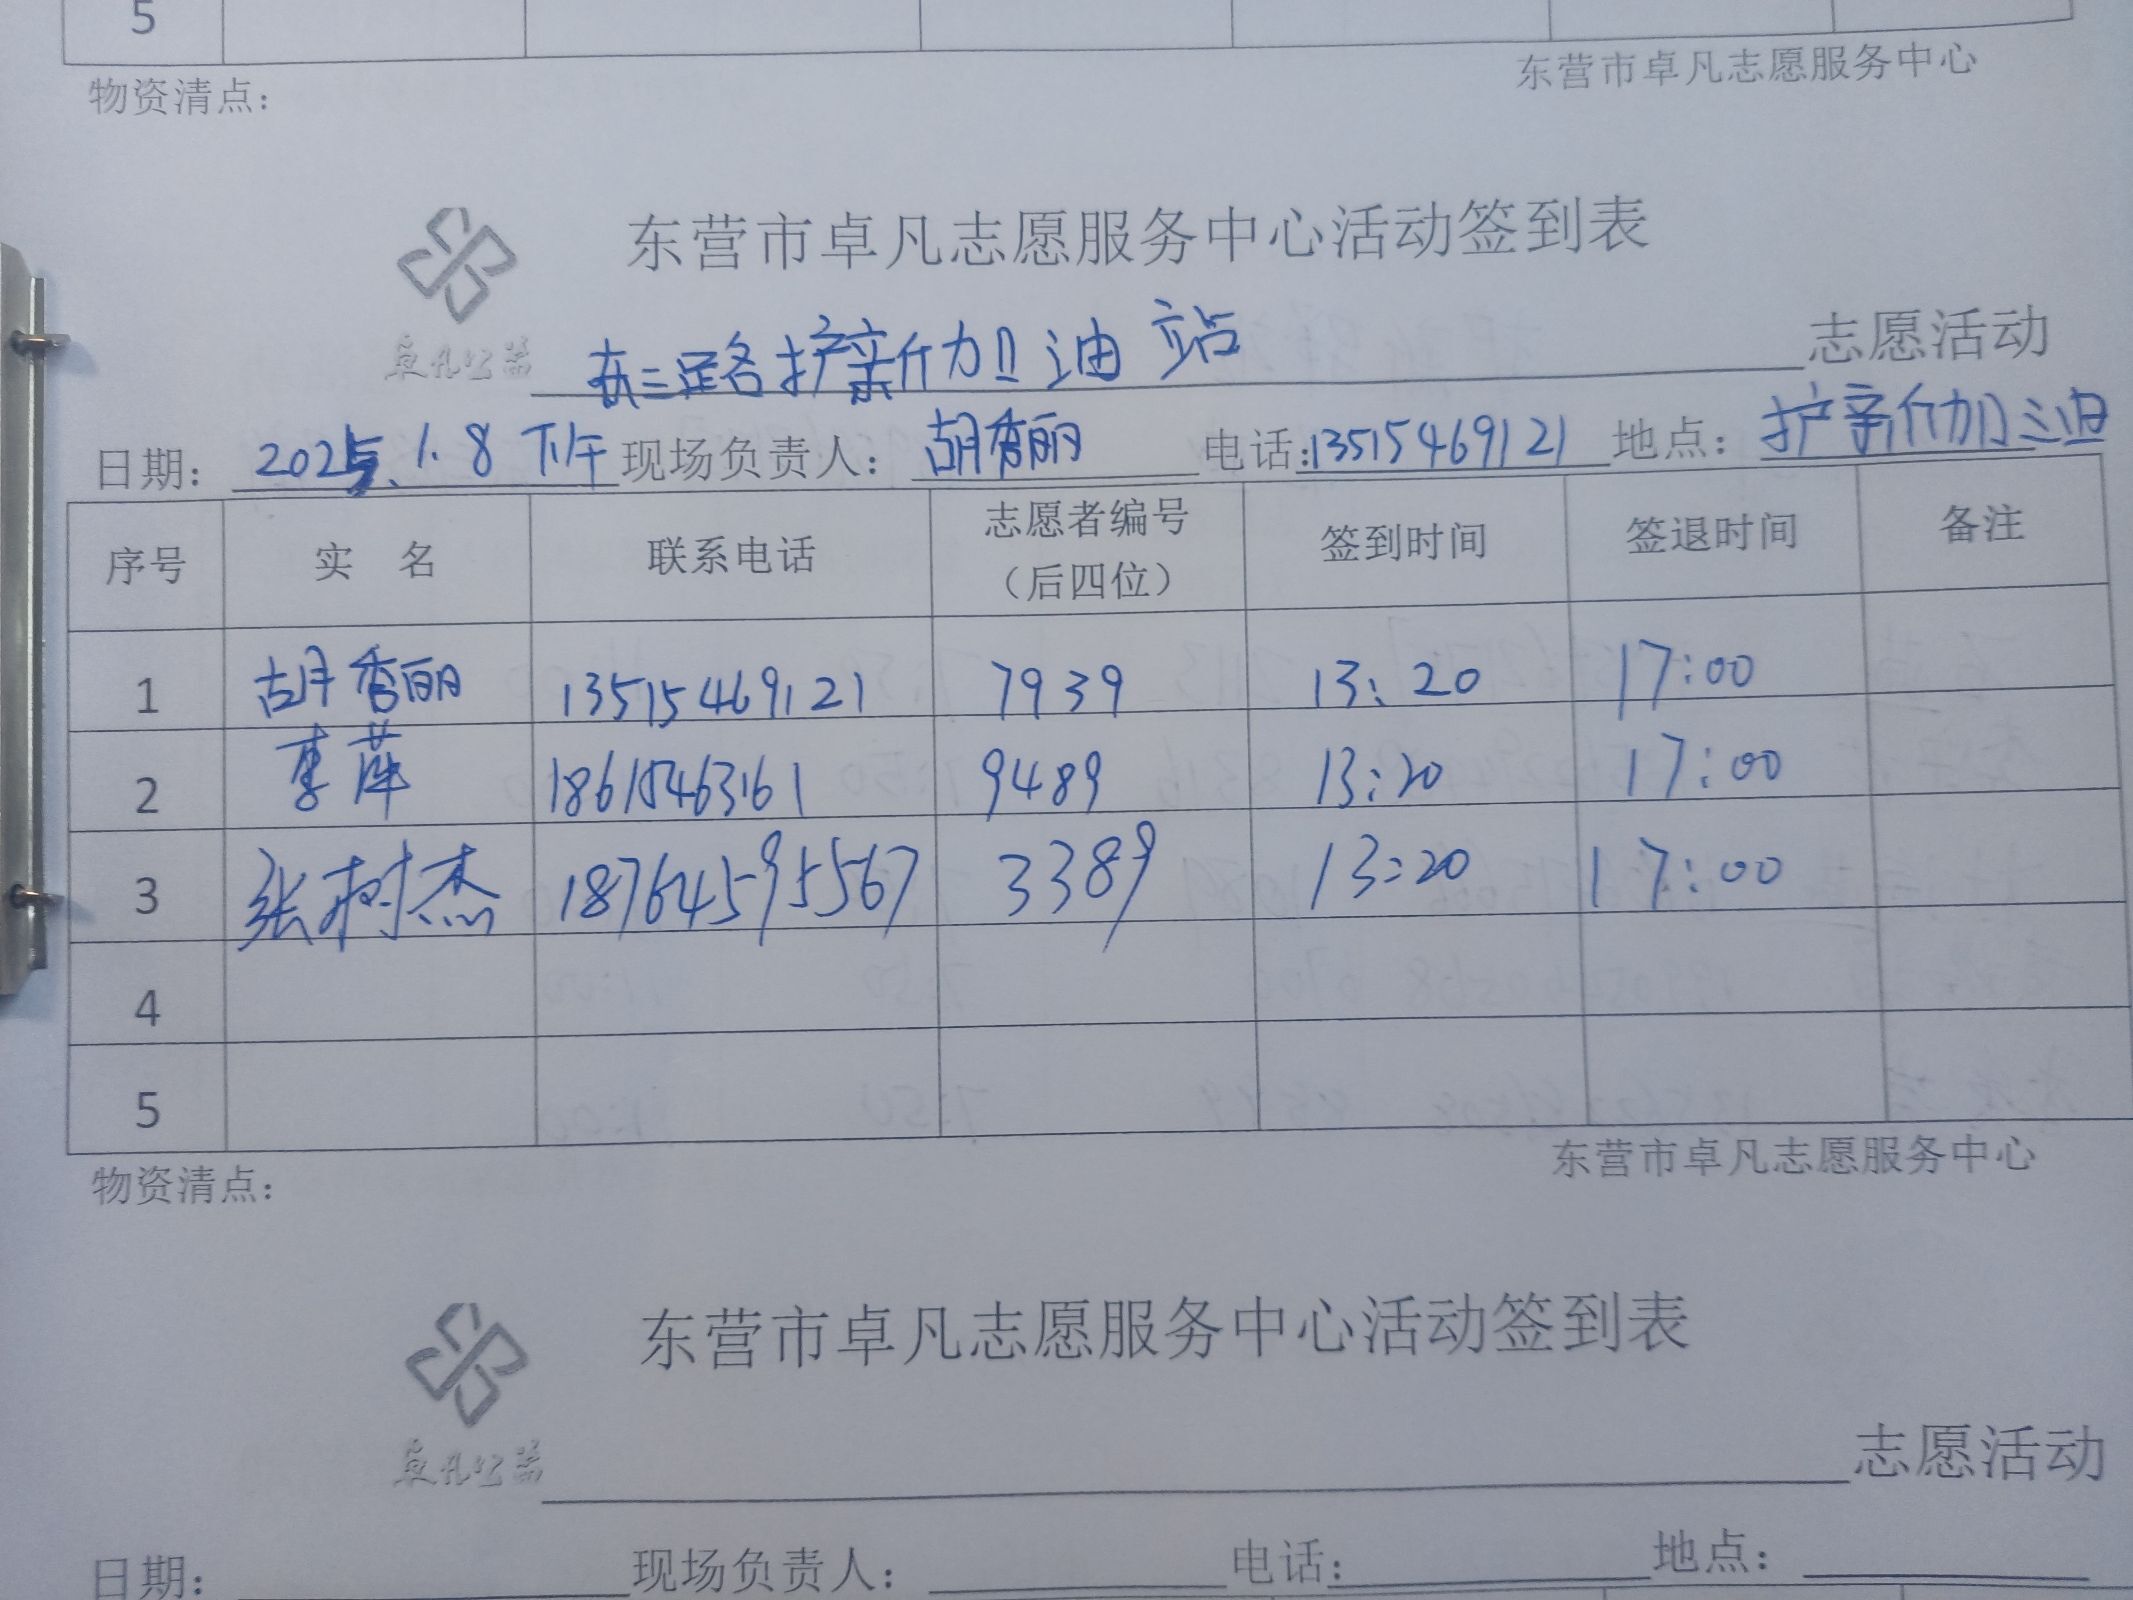 5
物资清点：
东营市卓凡志愿服务中心
东营市卓凡志愿服务中心活动签到表
卓凡公益
东三路护薪加油站 志愿活动
日期：2025.1.8 下午 现场负责人：胡秀丽 电话：13515469121 地点：护薪加油
序号 实 名 联系电话 志愿者编号（后四位） 签到时间 签退时间 备注
1 胡秀丽 13515469121 7939 13:20 17:00
2 李萍 18615463161 9489 13:20 17:00
3 张树杰 18764595567 3389 13:20 17:00
4
5
物资清点：
东营市卓凡志愿服务中心
东营市卓凡志愿服务中心活动签到表
卓凡公益
志愿活动
日期： 现场负责人： 电话： 地点：